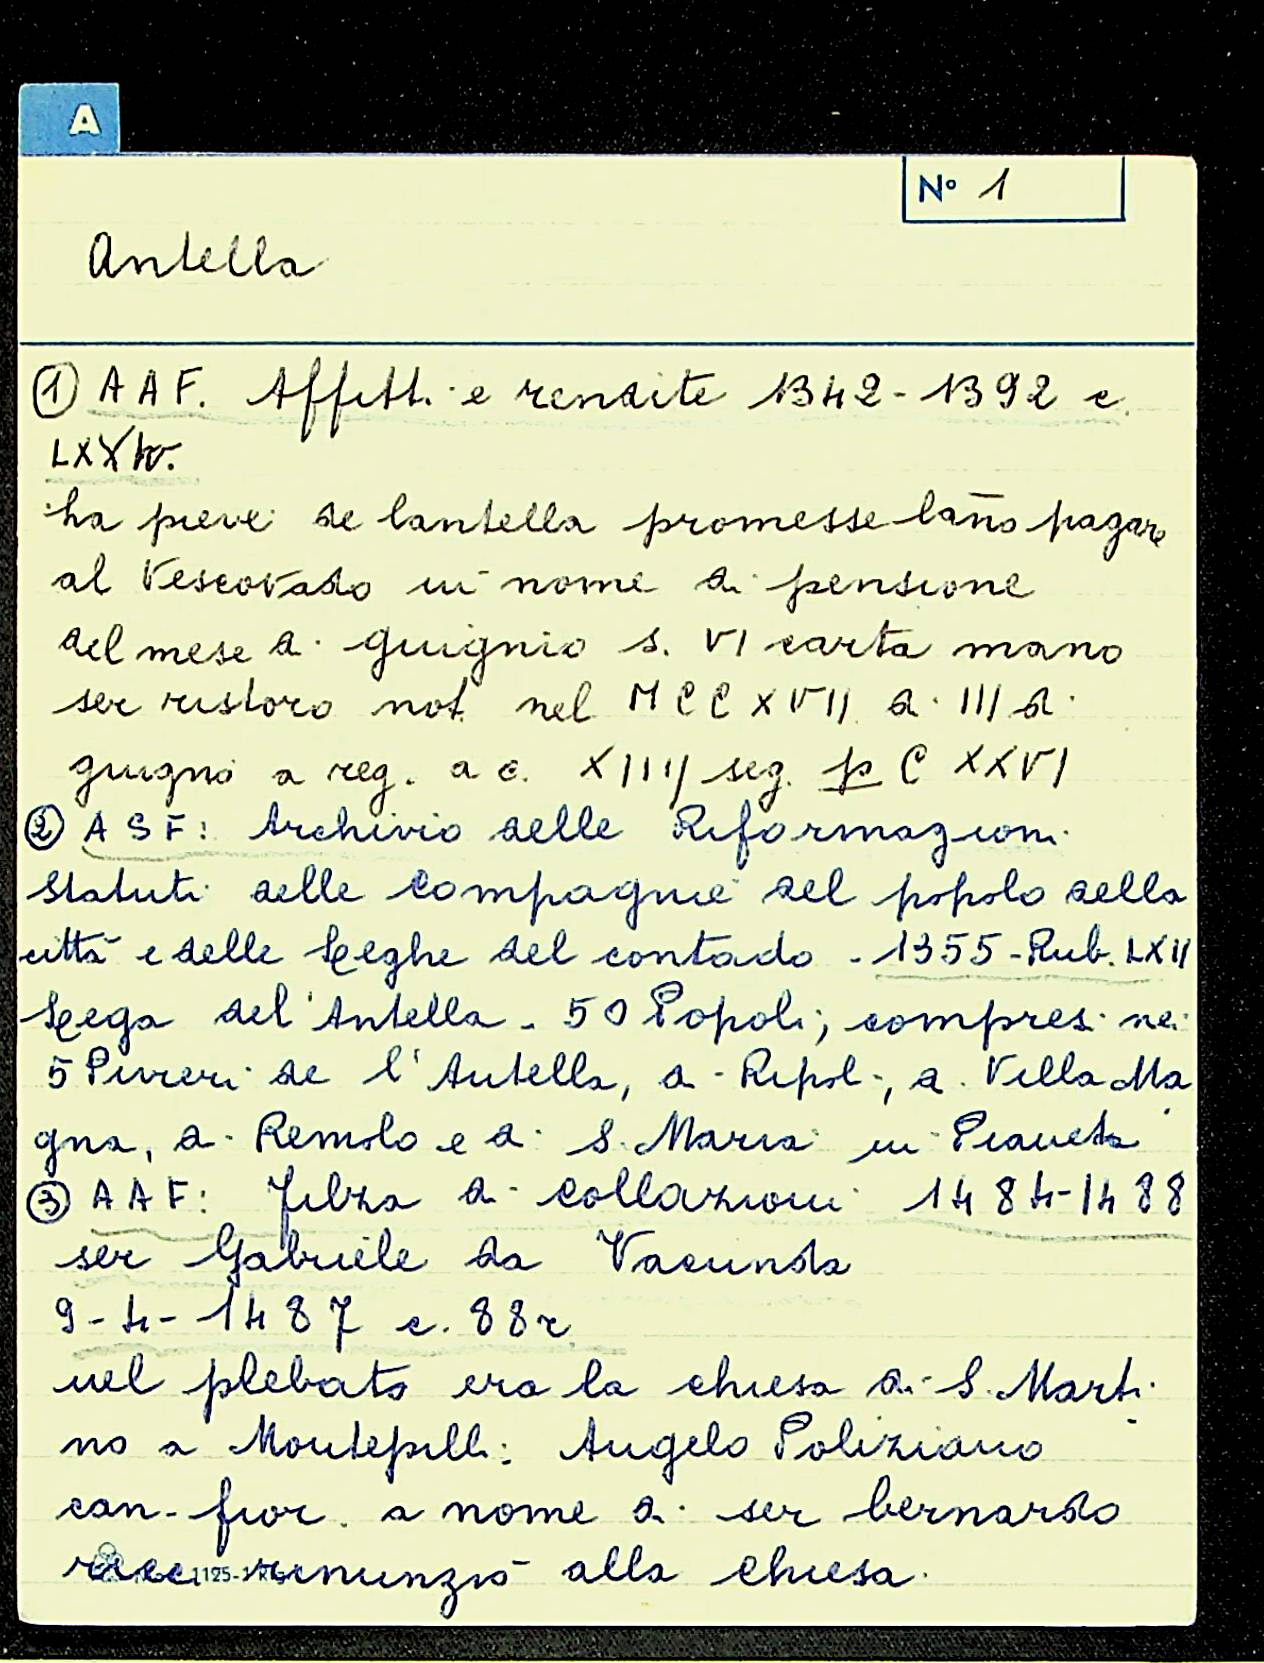 A
N° 1
Antella
① A A F. Affitti e rendite 1342-1392 c.
LXXIV.
La pieve de lantella promesse lāno pagare
al Vescovado in nome di pensione
del mese di guignio s. VI carta mano
ser ristoro not. nel MCCXVII a. III di
giugno a reg. a c. XIIII seg. p CXXVI
② A S F: Archivio delle Riformagioni
Statuti delle Compagnie del popolo della
città e delle Leghe del contado - 1355 - Rub. LXII
Lega del'Antella - 50 Popoli; compresi nei
5 Pivieri de l'Antella, di Ripoli, a. Villa Ma
gna, di Remolo e di S. Maria in Pianeta
③ A A F: Filza di collazioni 1484-1488
ser Gabriele da Vacunda
9-4-1487 c. 88r
nel plebato era la chiesa di S. Marti
no a Montepilli: Angelo Poliziano
can. fior. a nome di ser bernardo
ricci rinunziò alla chiesa.